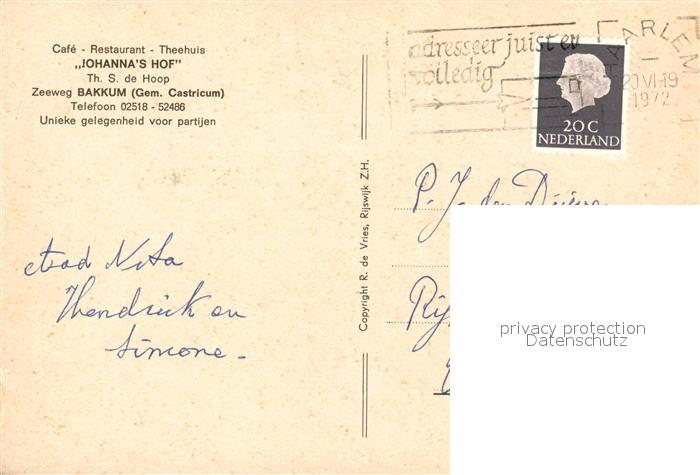 Café - Restaurant - Theehuis
„JOHANNA'S HOF"
Th. S. de Hoop
Zeeweg BAKKUM (Gem. Castricum)
Telefoon 02518 - 52486
Unieke gelegenheid voor partijen
adresseer juist en
volledig
HAARLEM
20 VI-19
1972
20 C
NEDERLAND
Copyright R. de Vries, Rijswijk Z.H.
P. J. den
Rij
Hendrick en
Simone -
privacy protection
Datenschutz